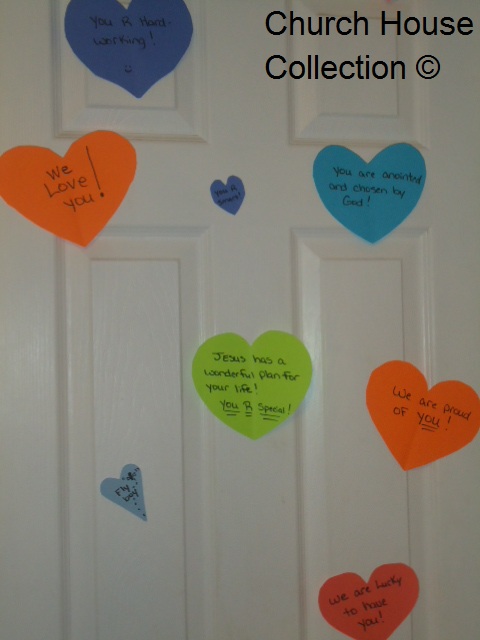 Church House
Collection ©
You R Hard-
working!
We
Love
you!
You R
Smart!
You are anointed
and chosen by
God!
Jesus has a
wonderful plan for
your life!
You R Special!
We are proud
of you!
Fly
boy
We are Lucky
to have
you!